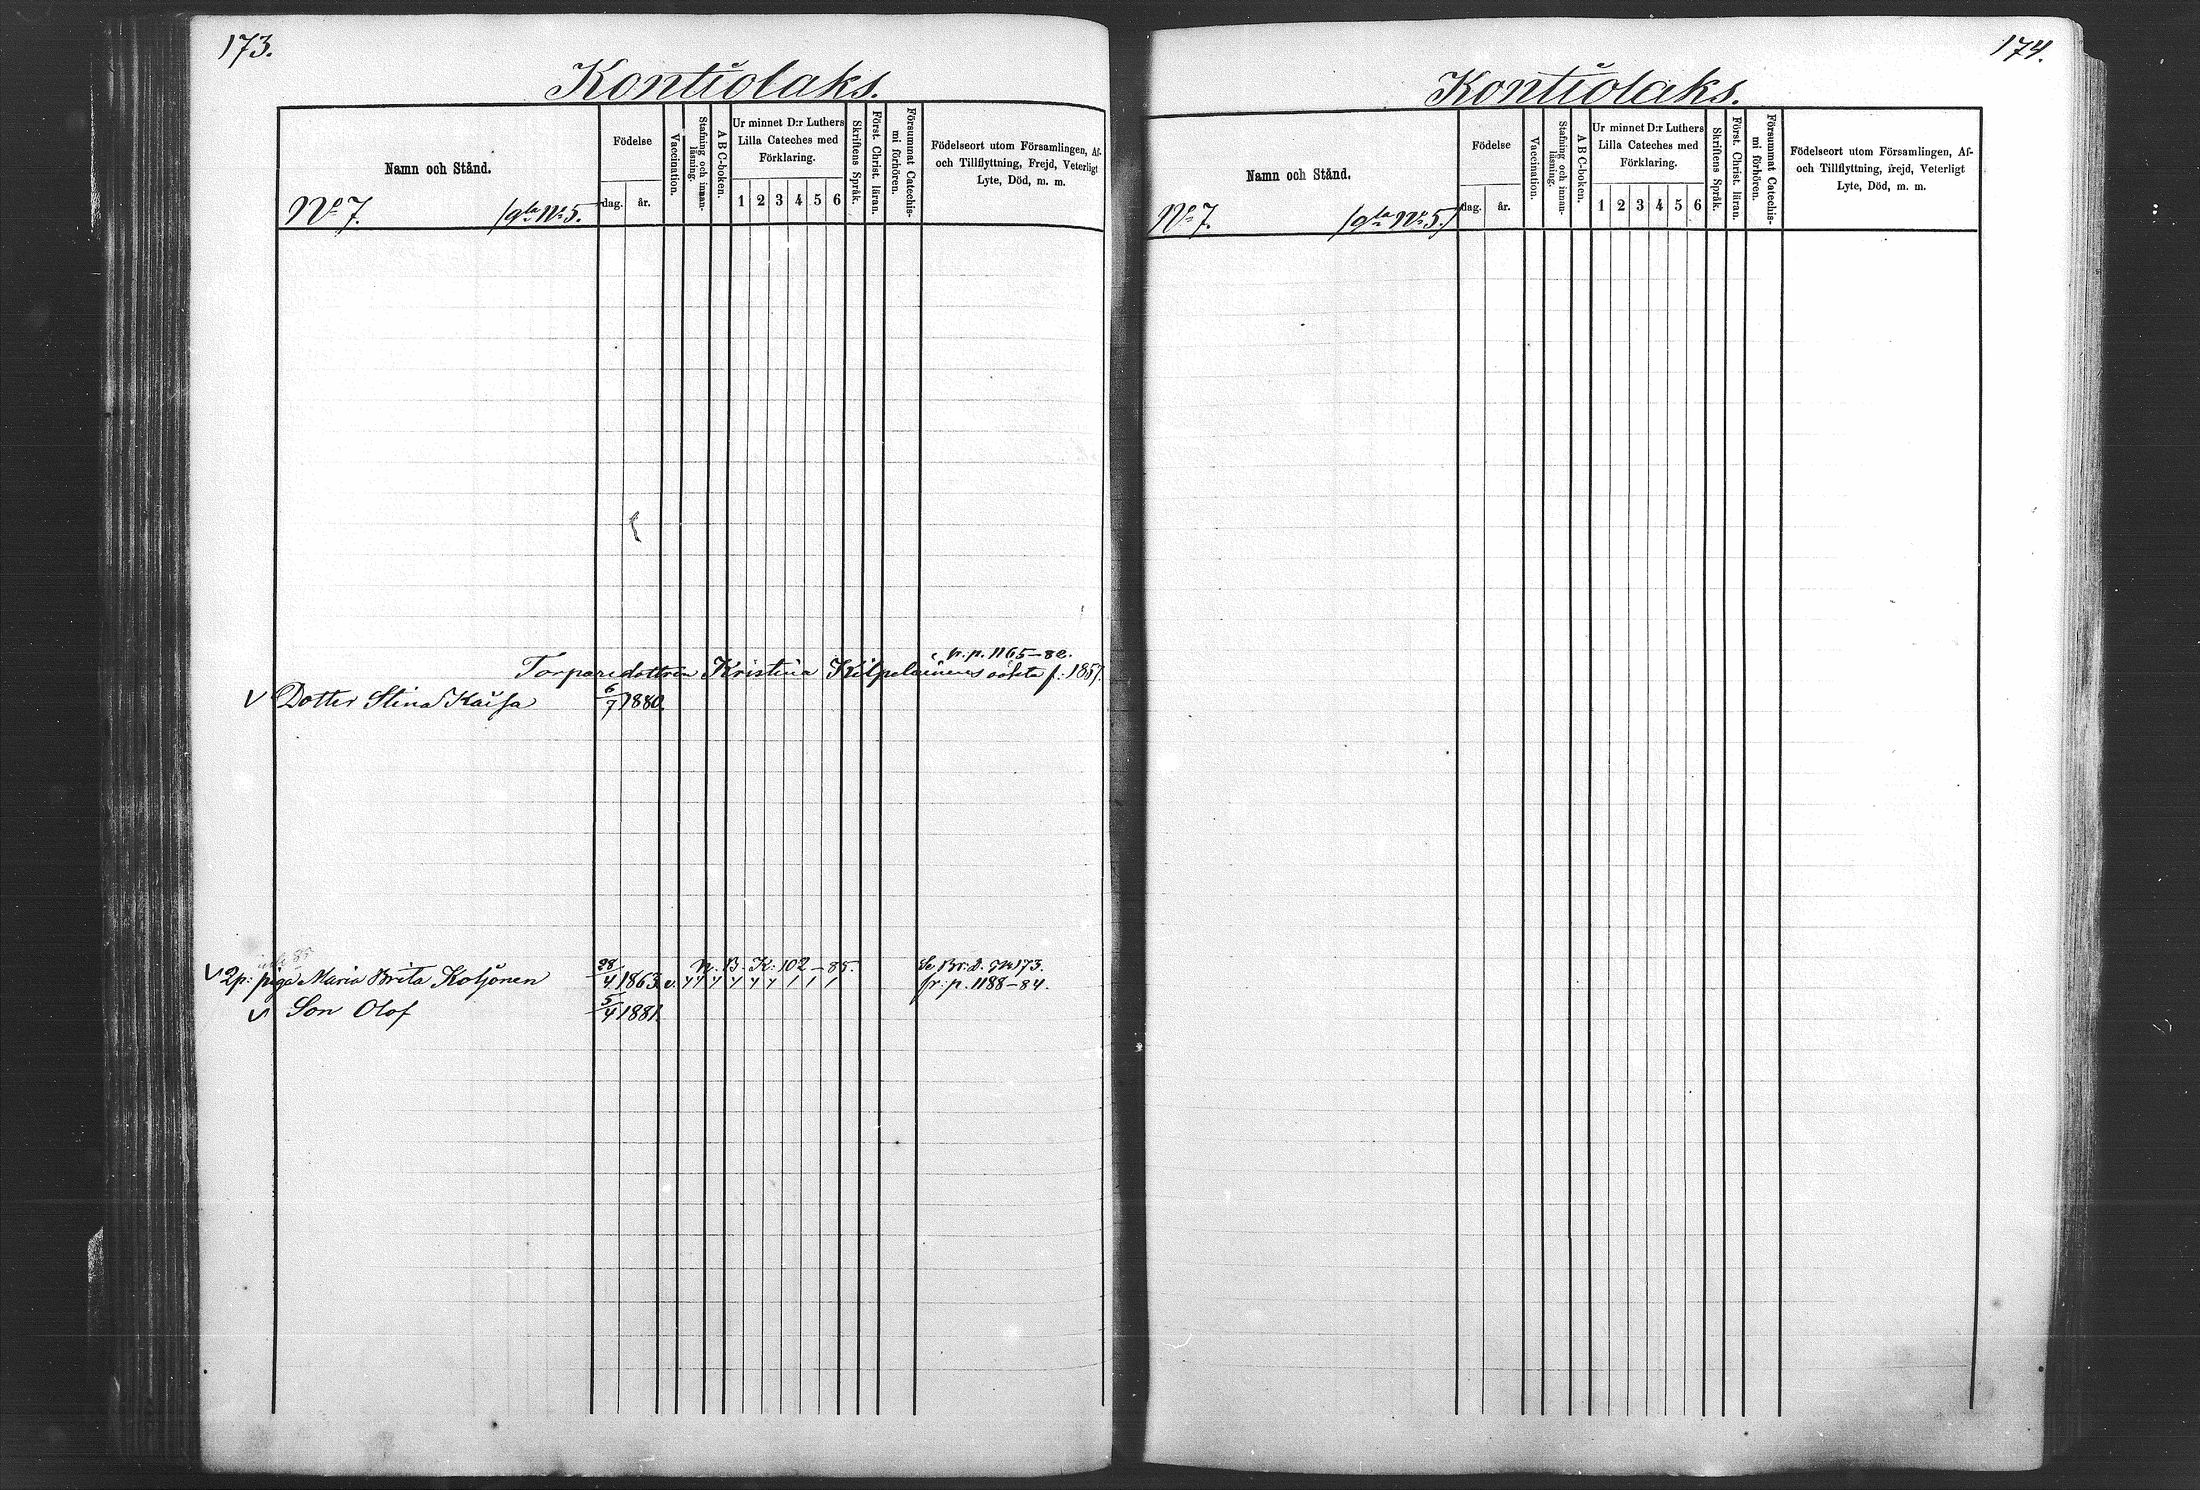 173.
Kontiolaks.
Namn och Stånd.
Födelse
dag. år.
Vaccination.
Stafning och innan-läsning.
ABC-boken.
Ur minnet D:r Luthers
Lilla Cateches med
Förklaring.
1 2 3 4 5 6
Skriftens Språk.
Först. Christ. läran.
Försummat Catechis-
mi förhören.
Födelseort utom Församlingen, Af-
och Tillflyttning, Frejd, Veterligt
Lyte, Död, m. m.
No 7. (gla No 5.
p. 1165-82.
Torparedottren Kristina Kilpeläinens oäkta f. 1857.
V Dotter Stina Kaisa 6/7 1880.
85
n. B. K. 102-85. Se Br.d. 173.
V 2p: piga Maria Brita Kotjonen 28/4 1863 v. fr. p. 1188-84.
V Son Olof 5/4 1881.
174.
Kontiolaks.
Namn och Stånd.
Födelse
dag. år.
Vaccination.
Stafning och innan-
läsning.
ABC-boken.
Ur minnet D:r Luthers
Lilla Cateches med
Förklaring.
1 2 3 4 5 6
Skriftens Språk.
Först. Christ. läran.
Försummat Catechis-
mi förhören.
Födelseort utom Församlingen, Af-
och Tillflyttning, Frejd, Veterligt
Lyte, Död, m. m.
No 7. (gla No 5.)